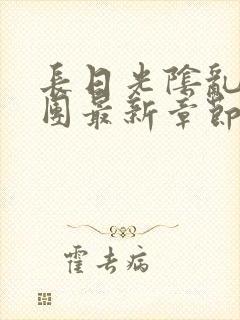 長日光陰亂
團最新章節
霍去病